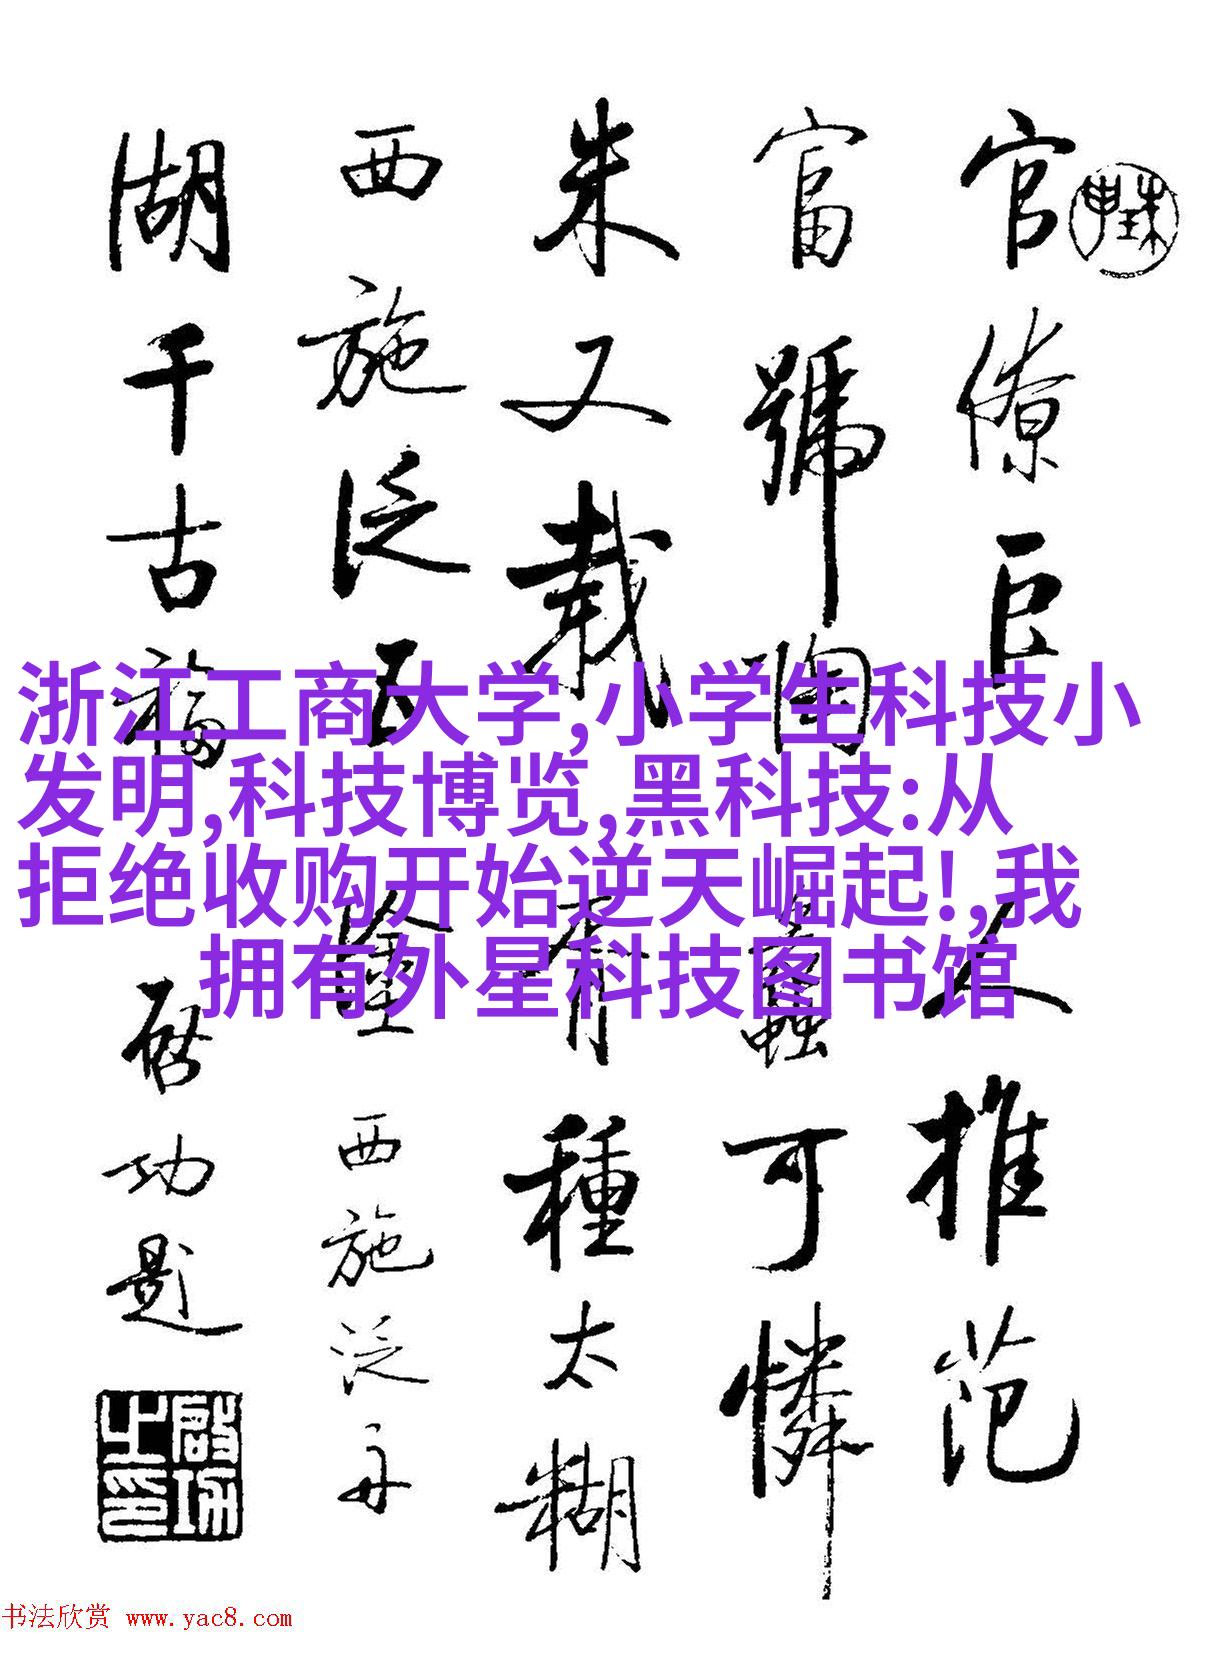 官僚巨
富號陶
朱又載
西施泛五
湖千古福
人推范
蠡可憐
有種太糊
塗
西施泛舟
啓功題
啓功之印
浙江工商大学,小学生科技小
发明,科技博览,黑科技:从
拒绝收购开始逆天崛起!,我
拥有外星科技图书馆
书法欣赏 www.yac8.com